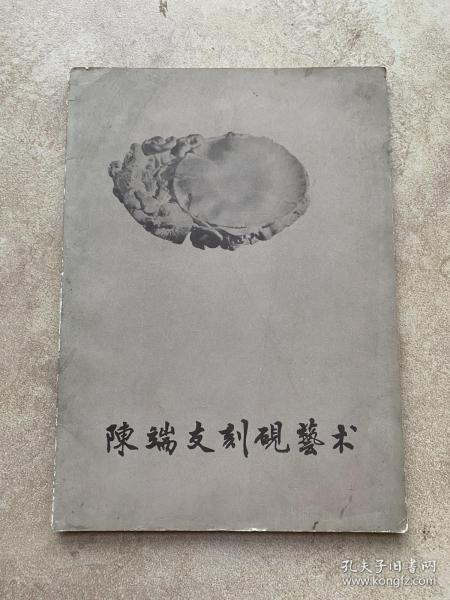 陳端支刻硯藝术
孔夫子旧书网
www.kongfz.com